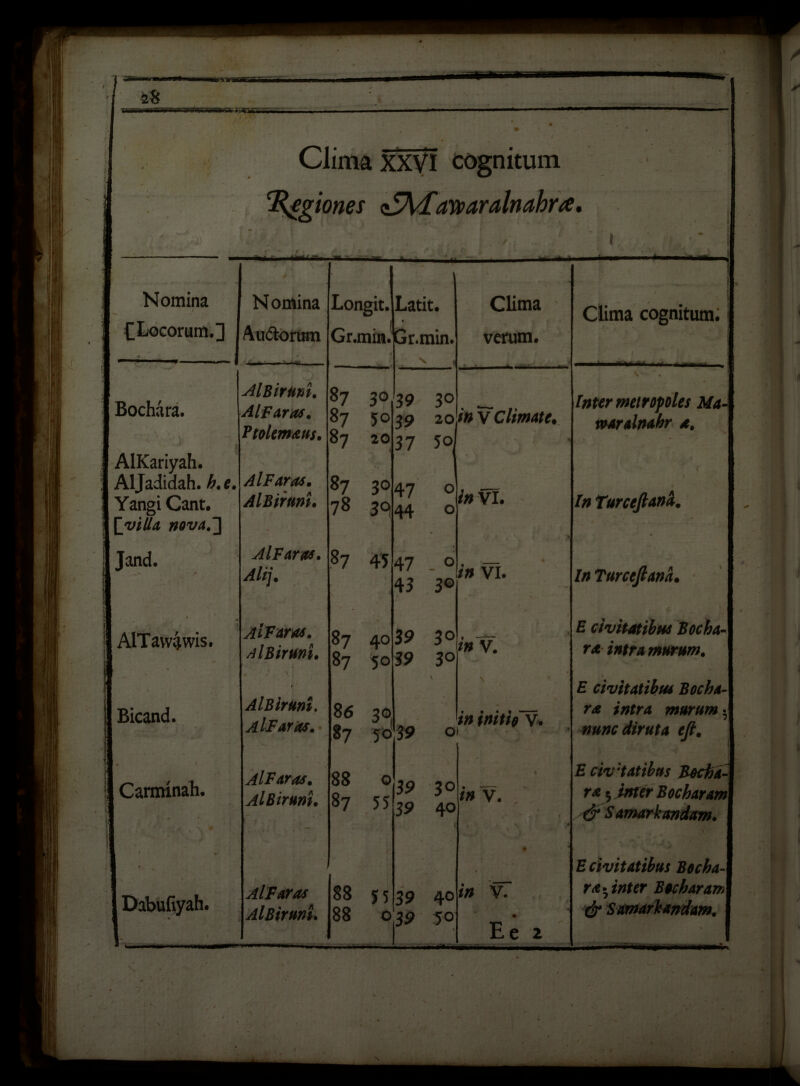 28
Clima XXVI cognitum
Regiones Mawaralnahræ.
Nomina | Nomina | Longit. | Latit. | Clima | Clima cognitum.
[Locorum.] | Auctorum | Gr.min. | Gr.min. | verum.
Bochára. | AlBiruni. | 87 30 | 39 30 | in V Climate. | Inter metropoles Ma-
AlFaras. | 87 50 | 39 20 | waralnahr æ.
Ptolemæus. | 87 20 | 37 50
AlKariyah.
AlJadidah. h.e. | AlFaras. | 87 30 | 47 0 | in VI. | In Turceſtanâ.
Yangi Cant. | AlBiruni. | 78 30 | 44 0
[villa nova.]
Jand. | AlFaras. | 87 45 | 47 0 | in VI. | In Turceſtanâ.
Alij. | 43 30
AlTawáwis. | AlFaras. | 87 40 | 39 30 | in V. | E civitatibus Bocha-
AlBiruni. | 87 50 | 39 30 | ræ intra murum.
Bicand. | AlBiruni. | 86 30 | in initio V. | E civitatibus Bocha-
ræ intra murum;
AlFaras. | 87 50 | 39 0 | nunc diruta eſt.
Carmínah. | AlFaras. | 88 0 | 39 30 | in V. | E civitatibus Bocha-
AlBiruni. | 87 55 | 39 40 | ræ, inter Bocharam
& Samarkandam.
Dabúſiyah. | AlFaras | 88 55 | 39 40 | in V. | E civitatibus Bocha-
ræ, inter Bocharam
AlBiruni. | 88 0 | 39 50 | & Samarkandam.
Ee 2